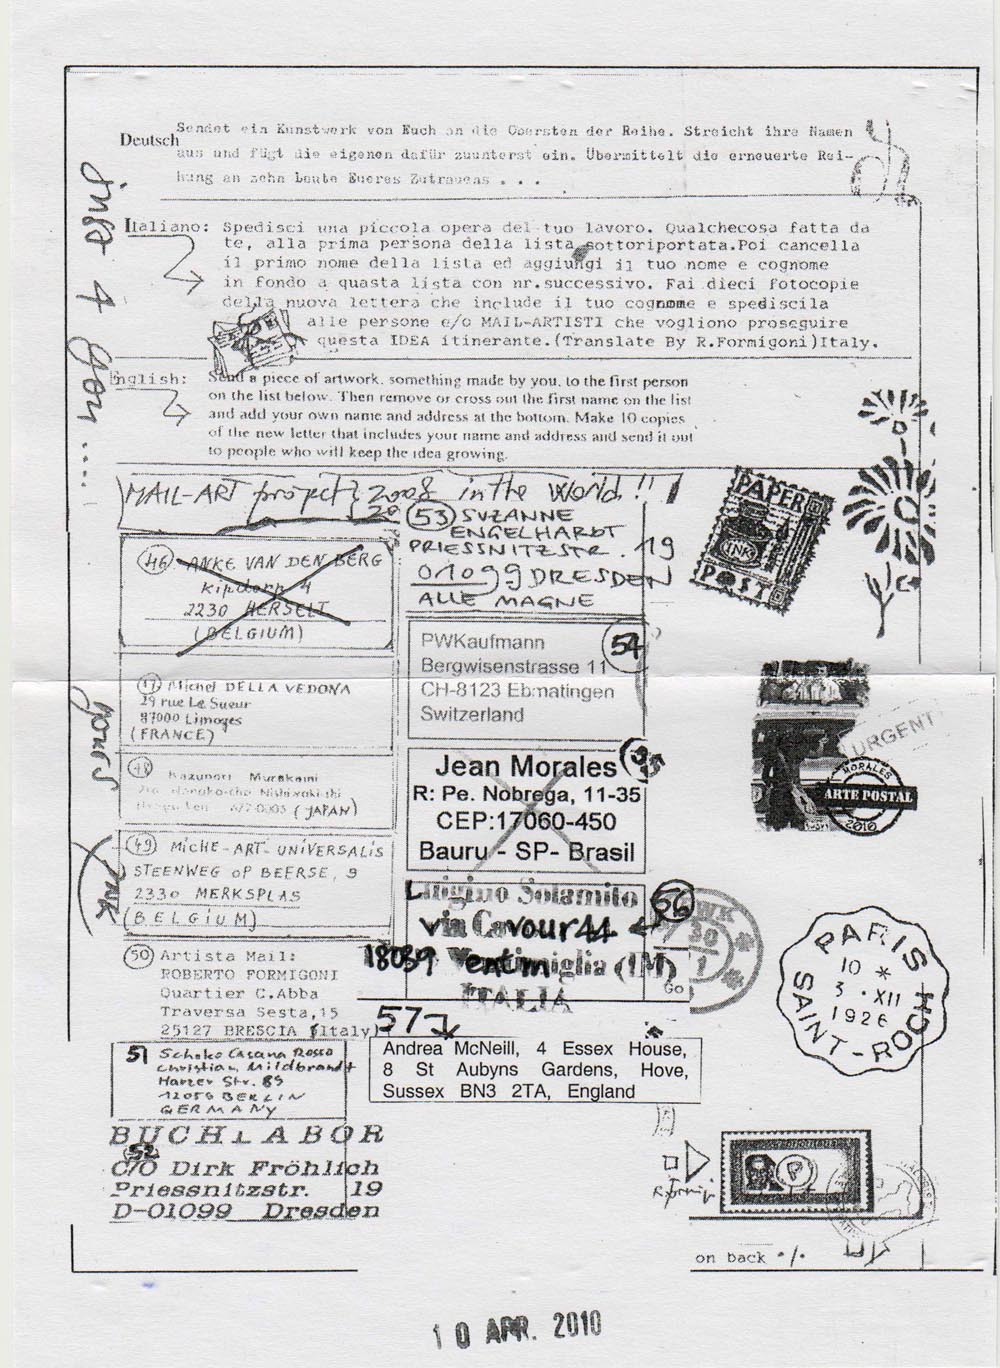 Deutsch
Sendet ein Kunstwerk von Euch an die Obersten der Reihe. Streicht ihre Namen
aus und fügt die eigenen dafür zuunterst ein. Übermittelt die erneuerte Rei-
hung an zehn Leute Eueres Zutrauens . . .
Italiano: Spedisci una piccola opera del tuo lavoro. Qualchecosa fatta da
te, alla prima persona della lista sottoriportata.Poi cancella
il primo nome della lista ed aggiungi il tuo nome e cognome
in fondo a quasta lista con nr.successivo. Fai dieci fotocopie
della nuova lettera che include il tuo cognome e spediscila
alle persone e/o MAIL-ARTISTI che vogliono proseguire
questa IDEA itinerante.(Translate By R.Formigoni)Italy.
English: Send a piece of artwork, something made by you, to the first person
on the list below. Then remove or cross out the first name on the list
and add your own name and address at the bottom. Make 10 copies
of the new letter that includes your name and address and send it out
to people who will keep the idea growing.
just 4 you ....
MAIL-ART project 2008 in the World!!
46 ANKE VAN DEN BERG
Kipdorp 4
2230 HERSELT
(BELGIUM)
47 Michel DELLA VEDONA
29 rue Le Sueur
87000 Limoges
(FRANCE)
48 Kazunori Murakami
(JAPAN)
49 MICHE-ART-UNIVERSALIS
STEENWEG OP BEERSE, 9
2330 MERKSPLAS
(BELGIUM)
50 Artista Mail:
ROBERTO FORMIGONI
Quartier C.Abba
Traversa Sesta,15
25127 BRESCIA (Italy)
51 Schoko Casana Rosso
Christian Mildbrandt
Harzer Str. 89
12059 BERLIN
GERMANY
BUCHLABOR
52
C/O Dirk Fröhlich
Priessnitzstr. 19
D-01099 Dresden
53 SUZANNE
ENGELHARDT
PRIESSNITZSTR. 19
01099 DRESDEN
ALLE MAGNE
54
PWKaufmann
Bergwisenstrasse 11
CH-8123 Ebmatingen
Switzerland
Jean Morales 55
R: Pe. Nobrega, 11-35
CEP:17060-450
Bauru - SP- Brasil
Luigino Solamito 56
via Cavour 44
18039 Ventimiglia (IM)
ITALIA
Go
57
Andrea McNeill, 4 Essex House,
8 St Aubyns Gardens, Hove,
Sussex BN3 2TA, England
yours
PAPER
INK
POST
URGENT
MORALES
ARTE POSTAL
2010
PARIS
10 *
3 · XII
1926
SAINT-ROCH
P
on back ·/·
10 APR. 2010